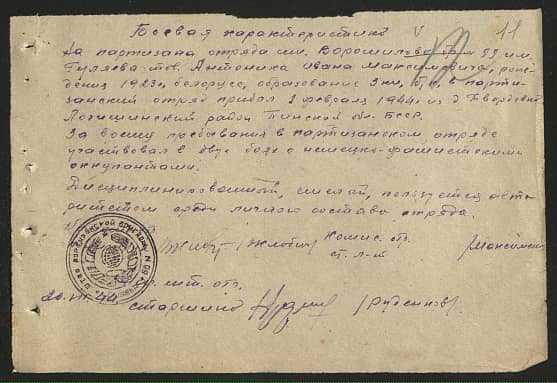 11
Боевая характеристика
На партизана отряда им. Ворошилова 99 им.
Гуляева тов. Антоника Ивана Максимовича, рож-
дения 1923г, белорус, образование 3 кл, б/п, в парти-
занский отряд прибыл 1 февраля 1944г. из д.
Логишинский район Пинской обл. БССР.
За время пребывания в партизанском отряде
участвовал в двух боях с немецко-фашистскими
оккупантами.
Дисциплинированный, смелый, пользуется авто-
ритетом среди личного состава отряда.
Комис. отр.
ст. л-т
шт. отр.
20.VII.44
старшина